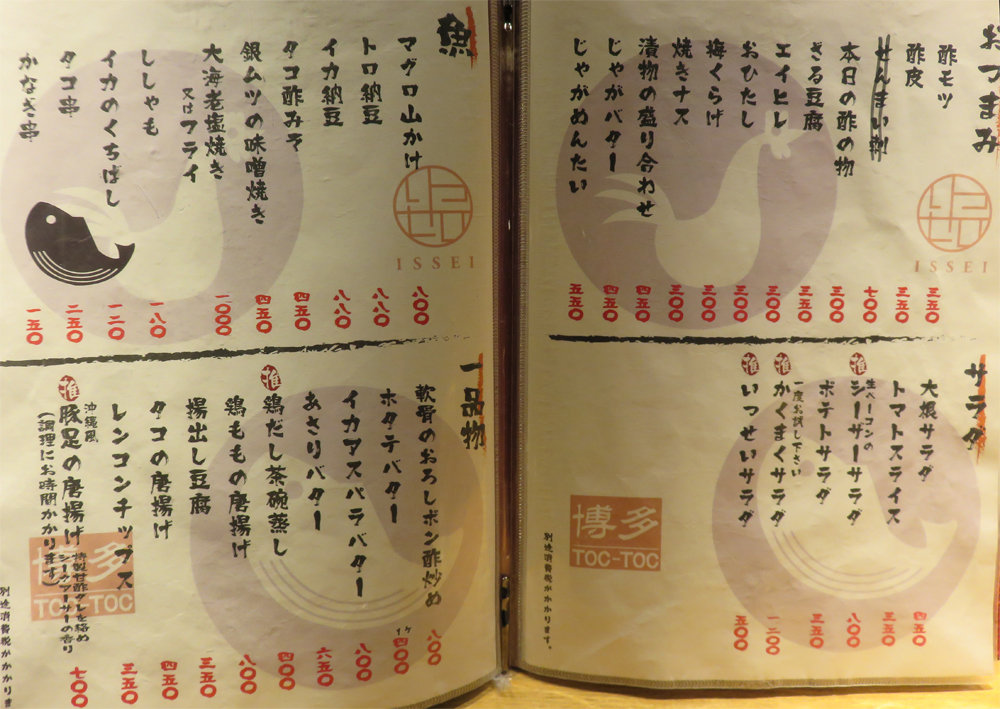 おつまみ
酢モツ 三五〇
酢皮 三五〇
せんまい刺 七〇〇
本日の酢の物 三〇〇
ざる豆腐 三五〇
エイヒレ 三〇〇
おひたし 三〇〇
梅くらげ 三〇〇
焼きナス 三〇〇
漬物の盛り合わせ 四五〇
じゃがバター 四五〇
じゃがめんたい 五五〇
ISSEI
サラダ
大根サラダ 四五〇
トマトスライス 三五〇
推 生ベーコンの
シーザーサラダ 八〇〇
ポテトサラダ 三五〇
推 かくまくサラダ 一二〇〇
一度お試し下さい
推 いっせいサラダ 五〇〇
博多
TOC-TOC
別途消費税がかかります。
魚
マグロ山かけ 八〇〇
トロ納豆 八八〇
イカ納豆 八八〇
タコ酢みそ 四五〇
銀ムツの味噌焼き 四五〇
大海老塩焼き 一〇〇〇
又はフライ
ししゃも 一八〇
イカのくちばし 一二〇
タコ串 二五〇
かなぎ串 一五〇
ISSEI
一品物
軟骨のおろしポン酢炒め 八〇〇
ホタテバター 1ケ 四〇〇
イカアスパラバター 八〇〇
あさりバター 六五〇
推 鶏だし茶碗蒸し 四〇〇
鶏ももの唐揚げ 八〇〇
揚出し豆腐 三五〇
タコの唐揚げ 四五〇
レンコンチップス 三五〇
推 沖縄風
豚足の唐揚げ 七〇〇
特製甘酢ダレを絡め
シークァーサーの香り
(調理にお時間かかります)
博多
TOC-TOC
別途消費税がかかりま